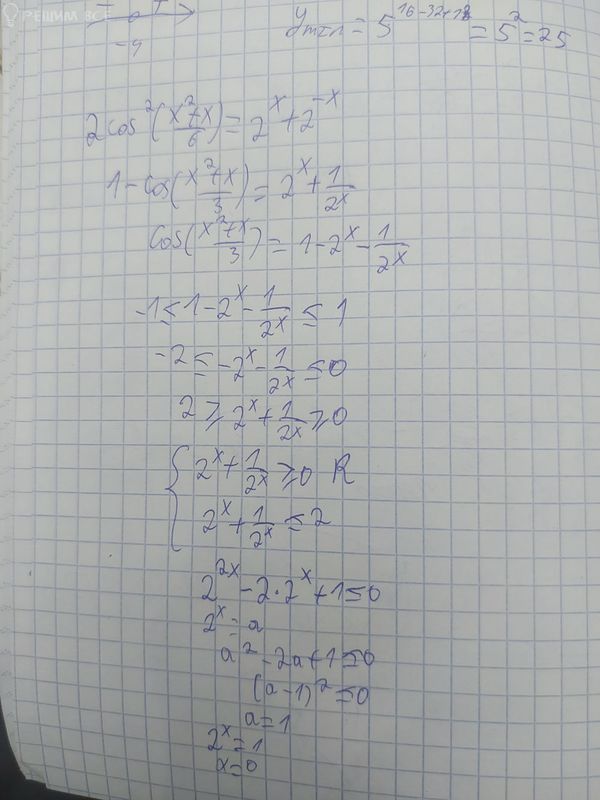 РЕШИМ ВСЁ
-4
y_min = 5^(16-32+18) = 5^2 = 25
2cos^2((x^2+x)/6) = 2^x + 2^-x
1 - cos((x^2+x)/3) = 2^x + 1/2^x
cos((x^2+x)/3) = 1 - 2^x - 1/2^x
-1 ≤ 1 - 2^x - 1/2^x ≤ 1
-2 ≤ -2^x - 1/2^x ≤ 0
2 ≥ 2^x + 1/2^x ≥ 0
{ 2^x + 1/2^x ≥ 0 R
2^x + 1/2^x ≤ 2
2^2x - 2·2^x + 1 ≤ 0
2^x = a
a^2 - 2a + 1 ≤ 0
(a-1)^2 ≤ 0
a = 1
2^x = 1
x = 0